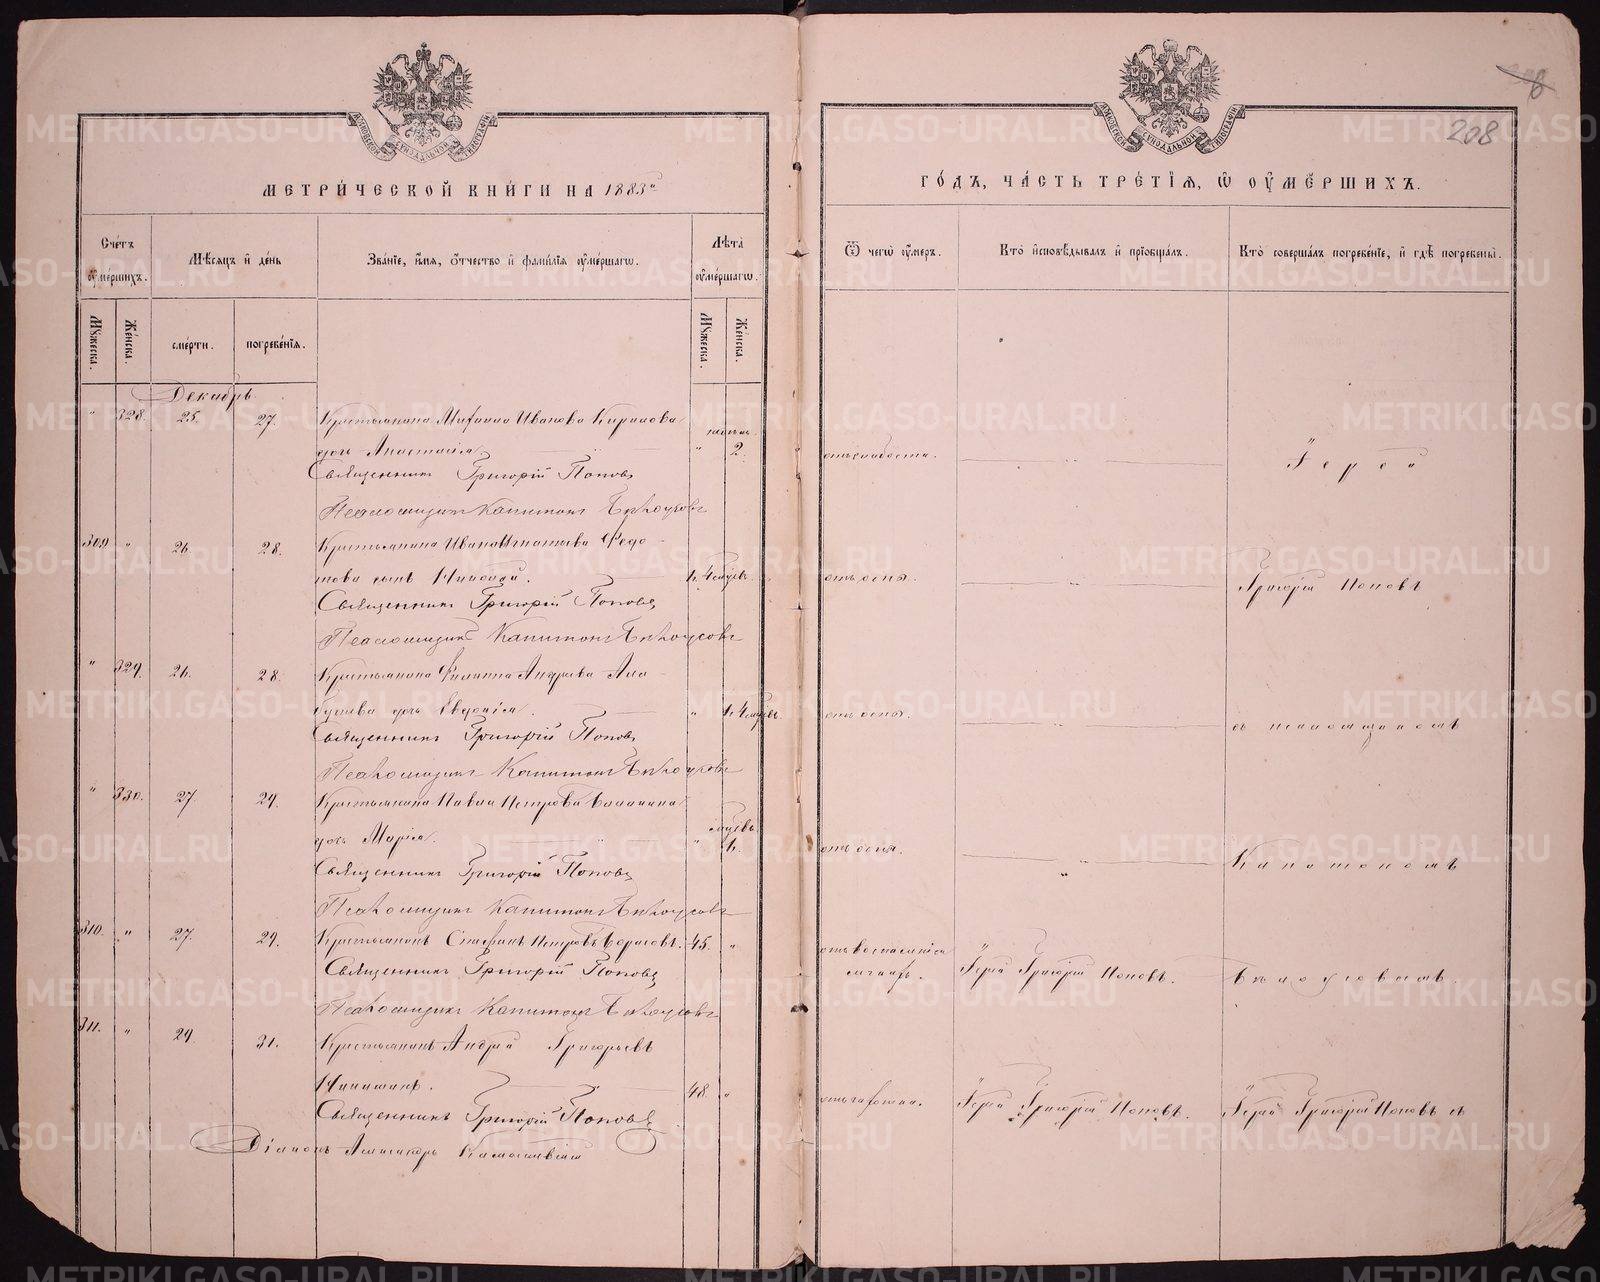 МЕТРИЧЕСКОЙ КНИГИ НА 1883й
Счетъ оумершихъ.
Мѣсяцъ и день
Званіе, имя, отчество и фамилія оумершагѡ.
Лѣта оумершагѡ.
Мꙋжеска.
Женска.
смерти.
погребенія.
Мꙋжеска.
Женска.
Декабрь
" 328. 25. 27. Крестьянина Ивана Кирилова
дочь Анастасія. " 2.
Священникъ Григорій Поповъ
Псаломщикъ Капитонъ Бѣлоусовъ
309 " 26. 28. Крестьянина Ивана Игнатьева Федо-
това сынъ Николай.
Священникъ Григорій Поповъ
Псаломщикъ Капитонъ Бѣлоусовъ
" 329. 26. 28. Крестьянина Филиппа Андреева
дочь Евдокія. "
Священникъ Григорій Поповъ
Псаломщикъ Капитонъ Бѣлоусовъ
" 330. 27 29. Крестьянина Павла Петрова
дочь Марія. "
Священникъ Григорій Поповъ
Псаломщикъ Капитонъ Бѣлоусовъ
310. " 27. 29. Крестьянинъ Стефанъ Петровъ 45. "
Священникъ Григорій Поповъ
Псаломщикъ Капитонъ Бѣлоусовъ
311. " 29. 31. Крестьянинъ Андрей Григорьевъ
48. "
Священникъ Григорій Поповъ
Діаконъ Александръ
208
ГОДЪ, ЧАСТЬ ТРЕТІЯ, Ѡ ОУМЕРШИХЪ.
Ѿ чегѡ оумеръ.
Кто исповѣдывалъ и пріобщалъ.
Кто совершалъ погребеніе, и гдѣ погребены.
отъ слабости.
Іерей
отъ оспы.
Григорій Поповъ
отъ оспы.
съ псаломщикомъ
отъ оспы.
Капитономъ
отъ воспаленія
Іерей Григорій Поповъ.
Бѣлоусовымъ.
отъ горячки.
Іерей Григорій Поповъ.
Іерей Григорій Поповъ съ
METRIKI.GASO-URAL.RU